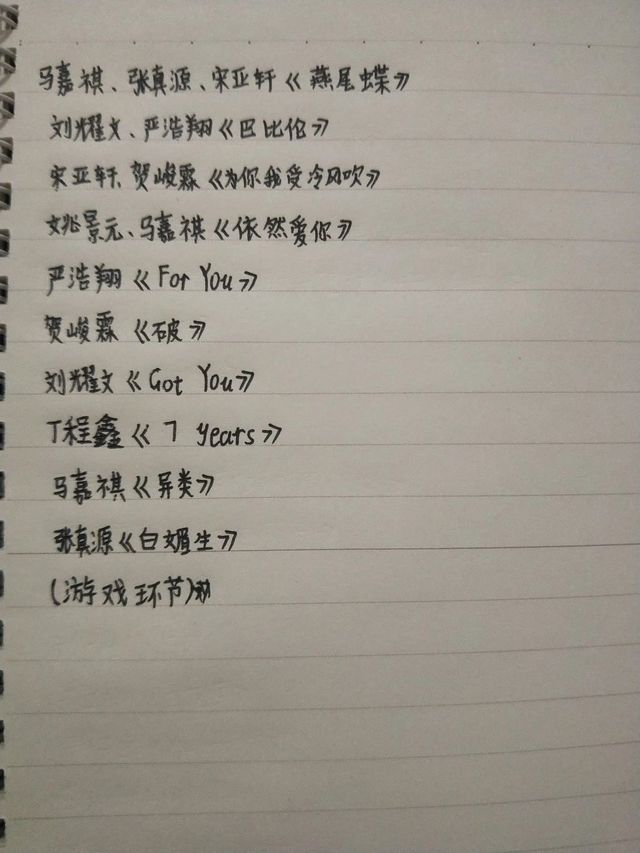 马嘉祺、张真源、宋亚轩《燕尾蝶》
刘耀文、严浩翔《巴比伦》
宋亚轩、贺峻霖《为你我受冷风吹》
姚景元、马嘉祺《依然爱你》
严浩翔《For You》
贺峻霖《破》
刘耀文《Got You》
丁程鑫《7 Years》
马嘉祺《异类》
张真源《白媚生》
(游戏环节)